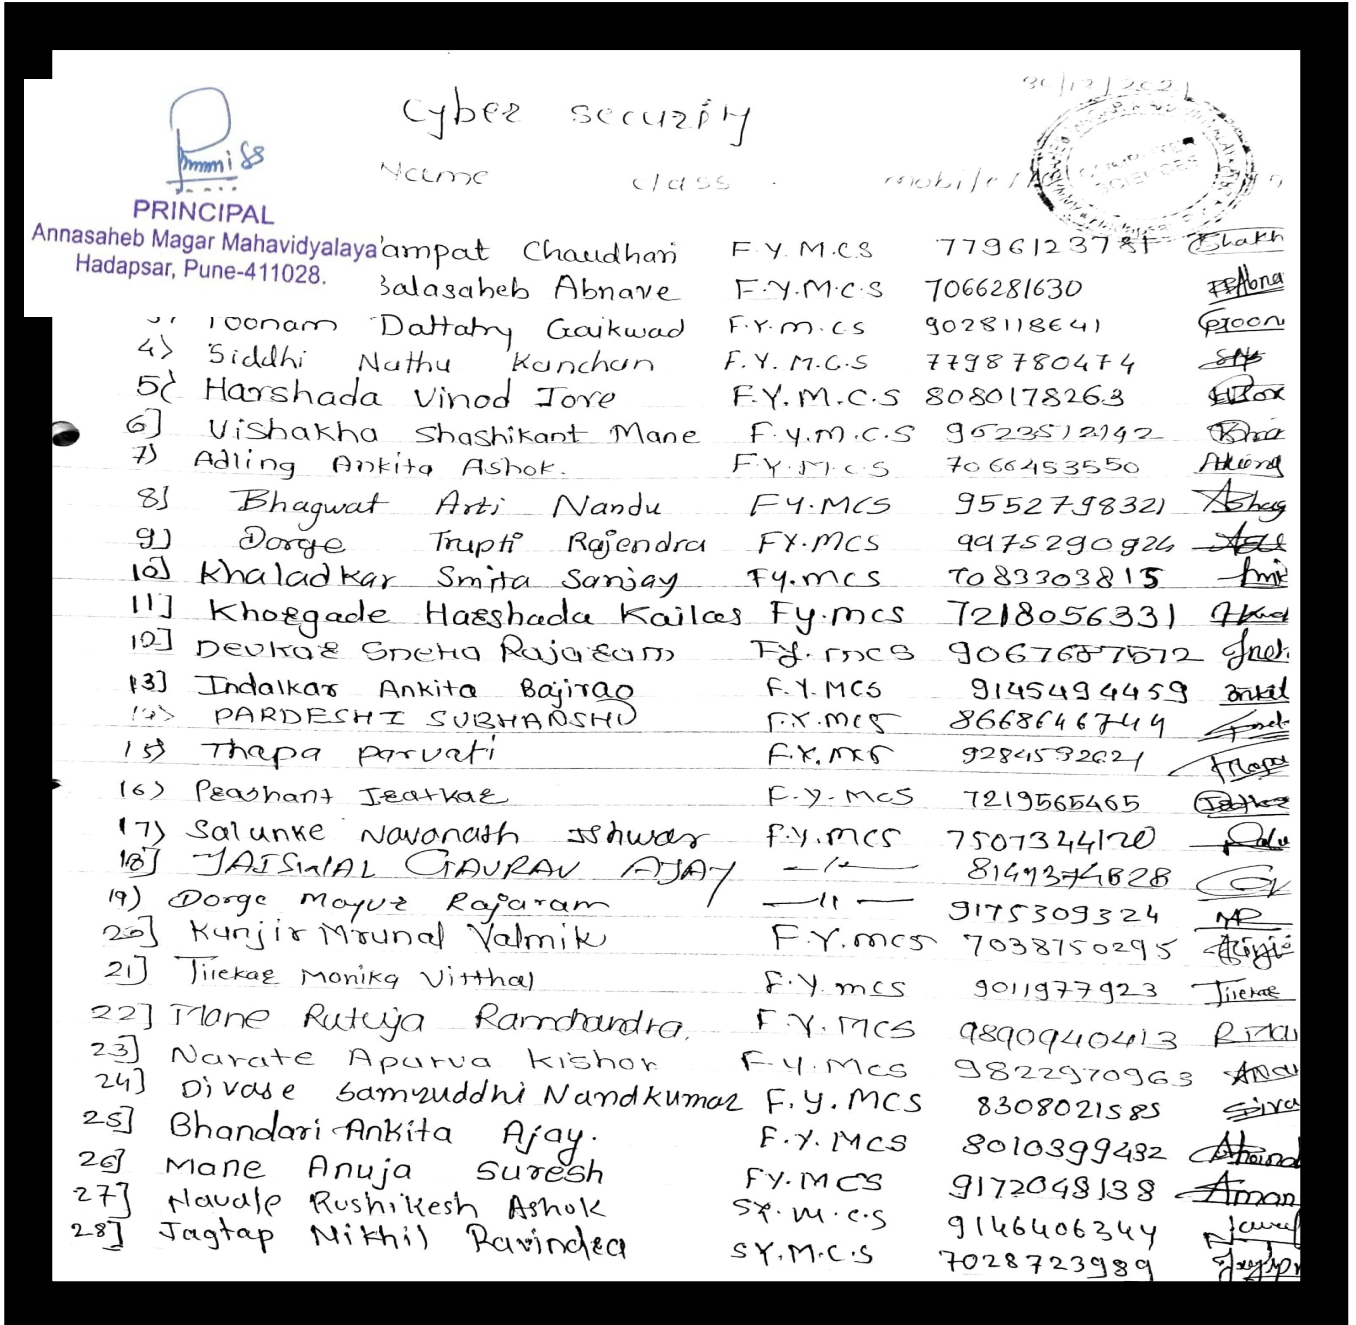 30/12/2021
Cyber security
Name class mobile
PRINCIPAL
Annasaheb Magar Mahavidyalaya
Hadapsar, Pune-411028.
COMPUTER SCIENCES
ampat Chaudhari F.Y.M.C.S
Balasaheb Abnave F.Y.M.C.S 7066281630
3) Poonam Dattatry Gaikwad F.Y.M.CS 9028118641
4) Siddhi Nathu Kanchan F.Y.M.C.S 7798780474
5) Harshada Vinod Jore F.Y.M.C.S 8080178263
6] Vishakha Shashikant Mane F.Y.M.C.S 9623512142
7) Adling Ankita Ashok. F.Y.M.C.S 7066453550
8] Bhagwat Arti Nandu FY.MCS 9552798321
9) Dorge Trupti Rajendra FY.MCS 9975290924
10] Khaladkar Smita Sanjay Fy.mcs 7083303815
11] Khorgade Harshada Kailas Fy.mcs 7218056331
12] Devkar Sneha Rajaram Fy.mcs
13] Indalkar Ankita Bajirao F.Y.MCS 9145494459
14) PARDESHI SUBHANSHU F.Y.MCS 8668646744
15) Thapa parvati F.Y.MCS
16) Prashant Iratkar F.Y.MCS 7219565465
17) Salunke Navanath Ishwar F.Y.MCS 7507344120
18] JAISWAL GAURAV AJAY —"—
19) Dorge Mayur Rajaram —11— 9175309324
20] Kunjir Mrunal Valmik F.Y.mcs 7038750295
21] Tilekar Monika Vitthal F.Y.mcs 9011977923
22] Mane Rutuja Ramchandra. F.Y.MCS 9890940413
23] Narate Apurva Kishor F.Y.MCS 9822970963
24] Divase Samruddhi Nandkumar F.Y.MCS 8308021585
25] Bhandari Ankita Ajay. F.Y.MCS 8010399432
26] Mane Anuja Suresh FY.MCS 9172048138
27] Navale Rushikesh Ashok SY.M.C.S 9146406344
28] Jagtap Nikhil Ravindra SY.M.C.S 7028723989